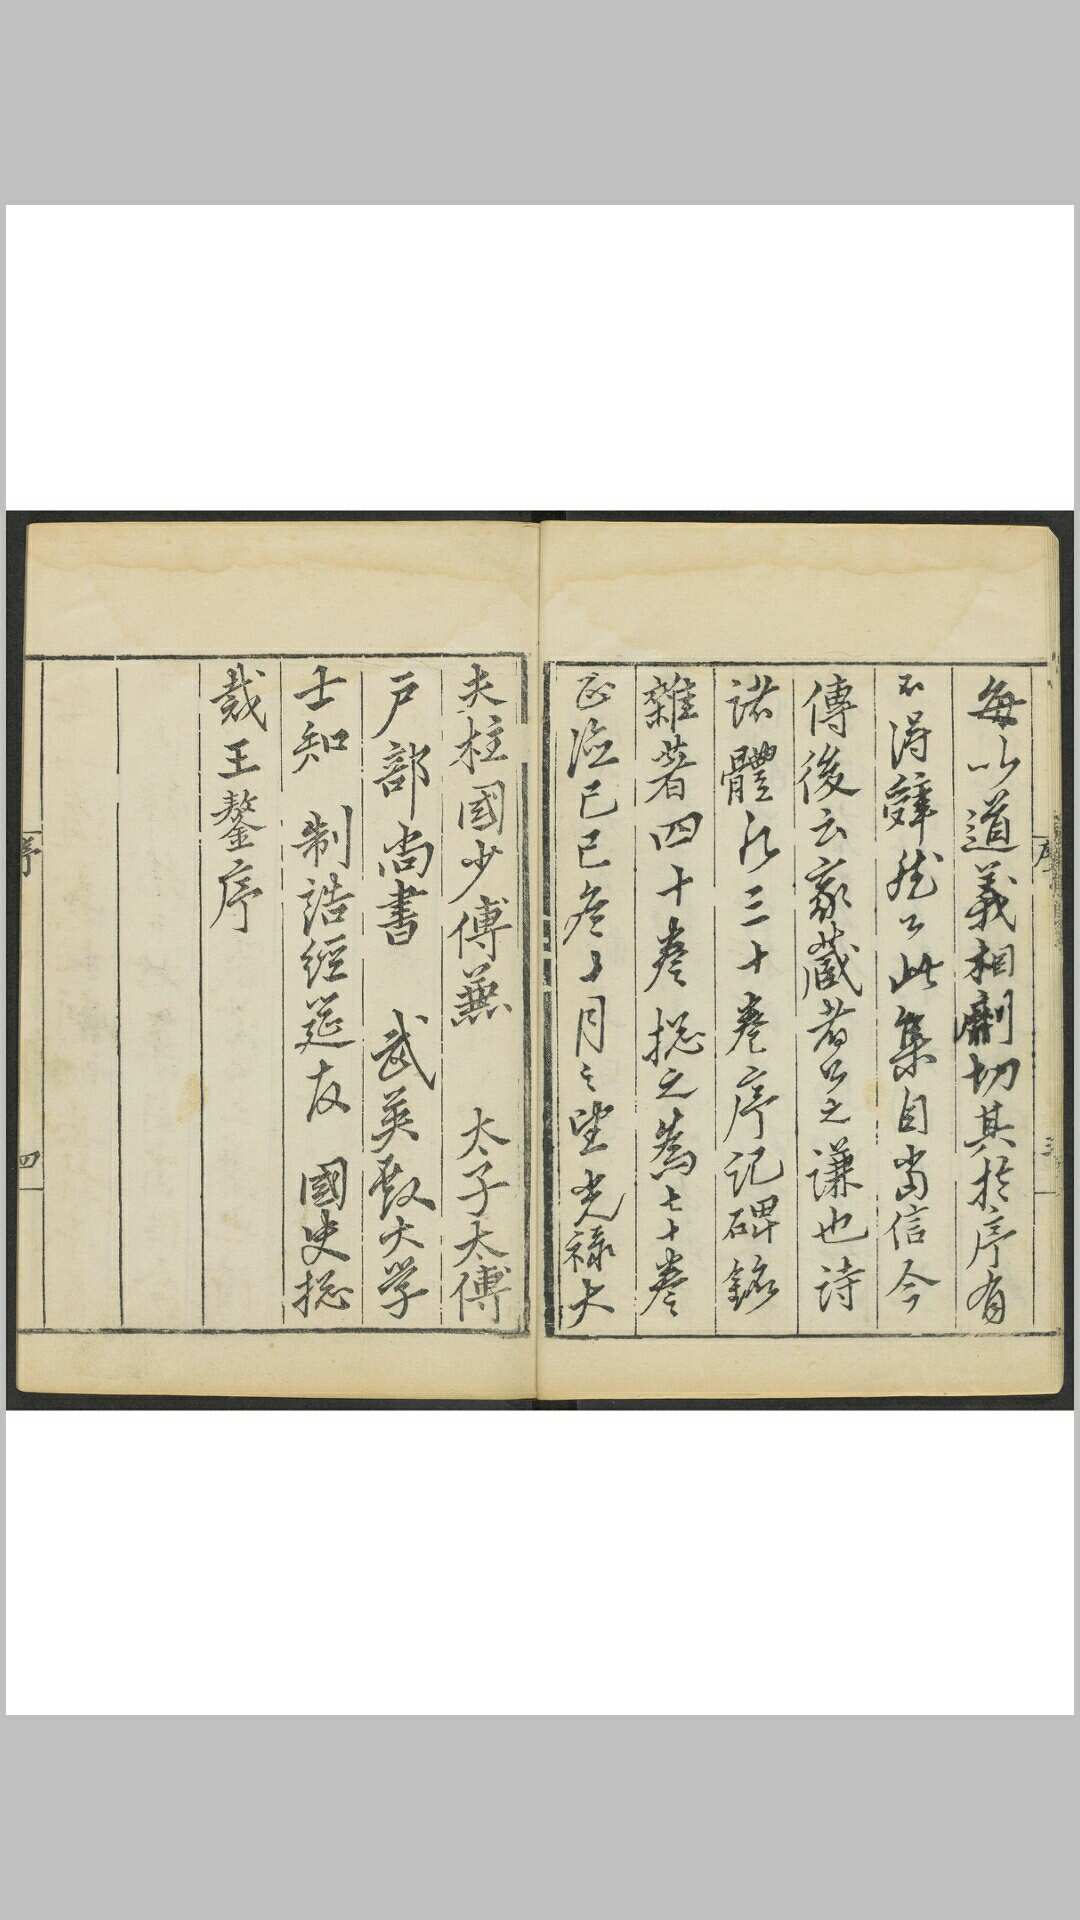 每以道義相劘切其於序有
不得辭然公此集自當信今
傳後云家藏者公之謙也詩
諸體凡三十卷序記碑銘
雜著四十卷總之為七十卷
正德己巳春三月之望光祿大
夫柱國少傅兼 太子太傅
戶部尚書 武英殿大學
士知 制誥經筵官 國史總
裁王鏊序
序 三
序 四